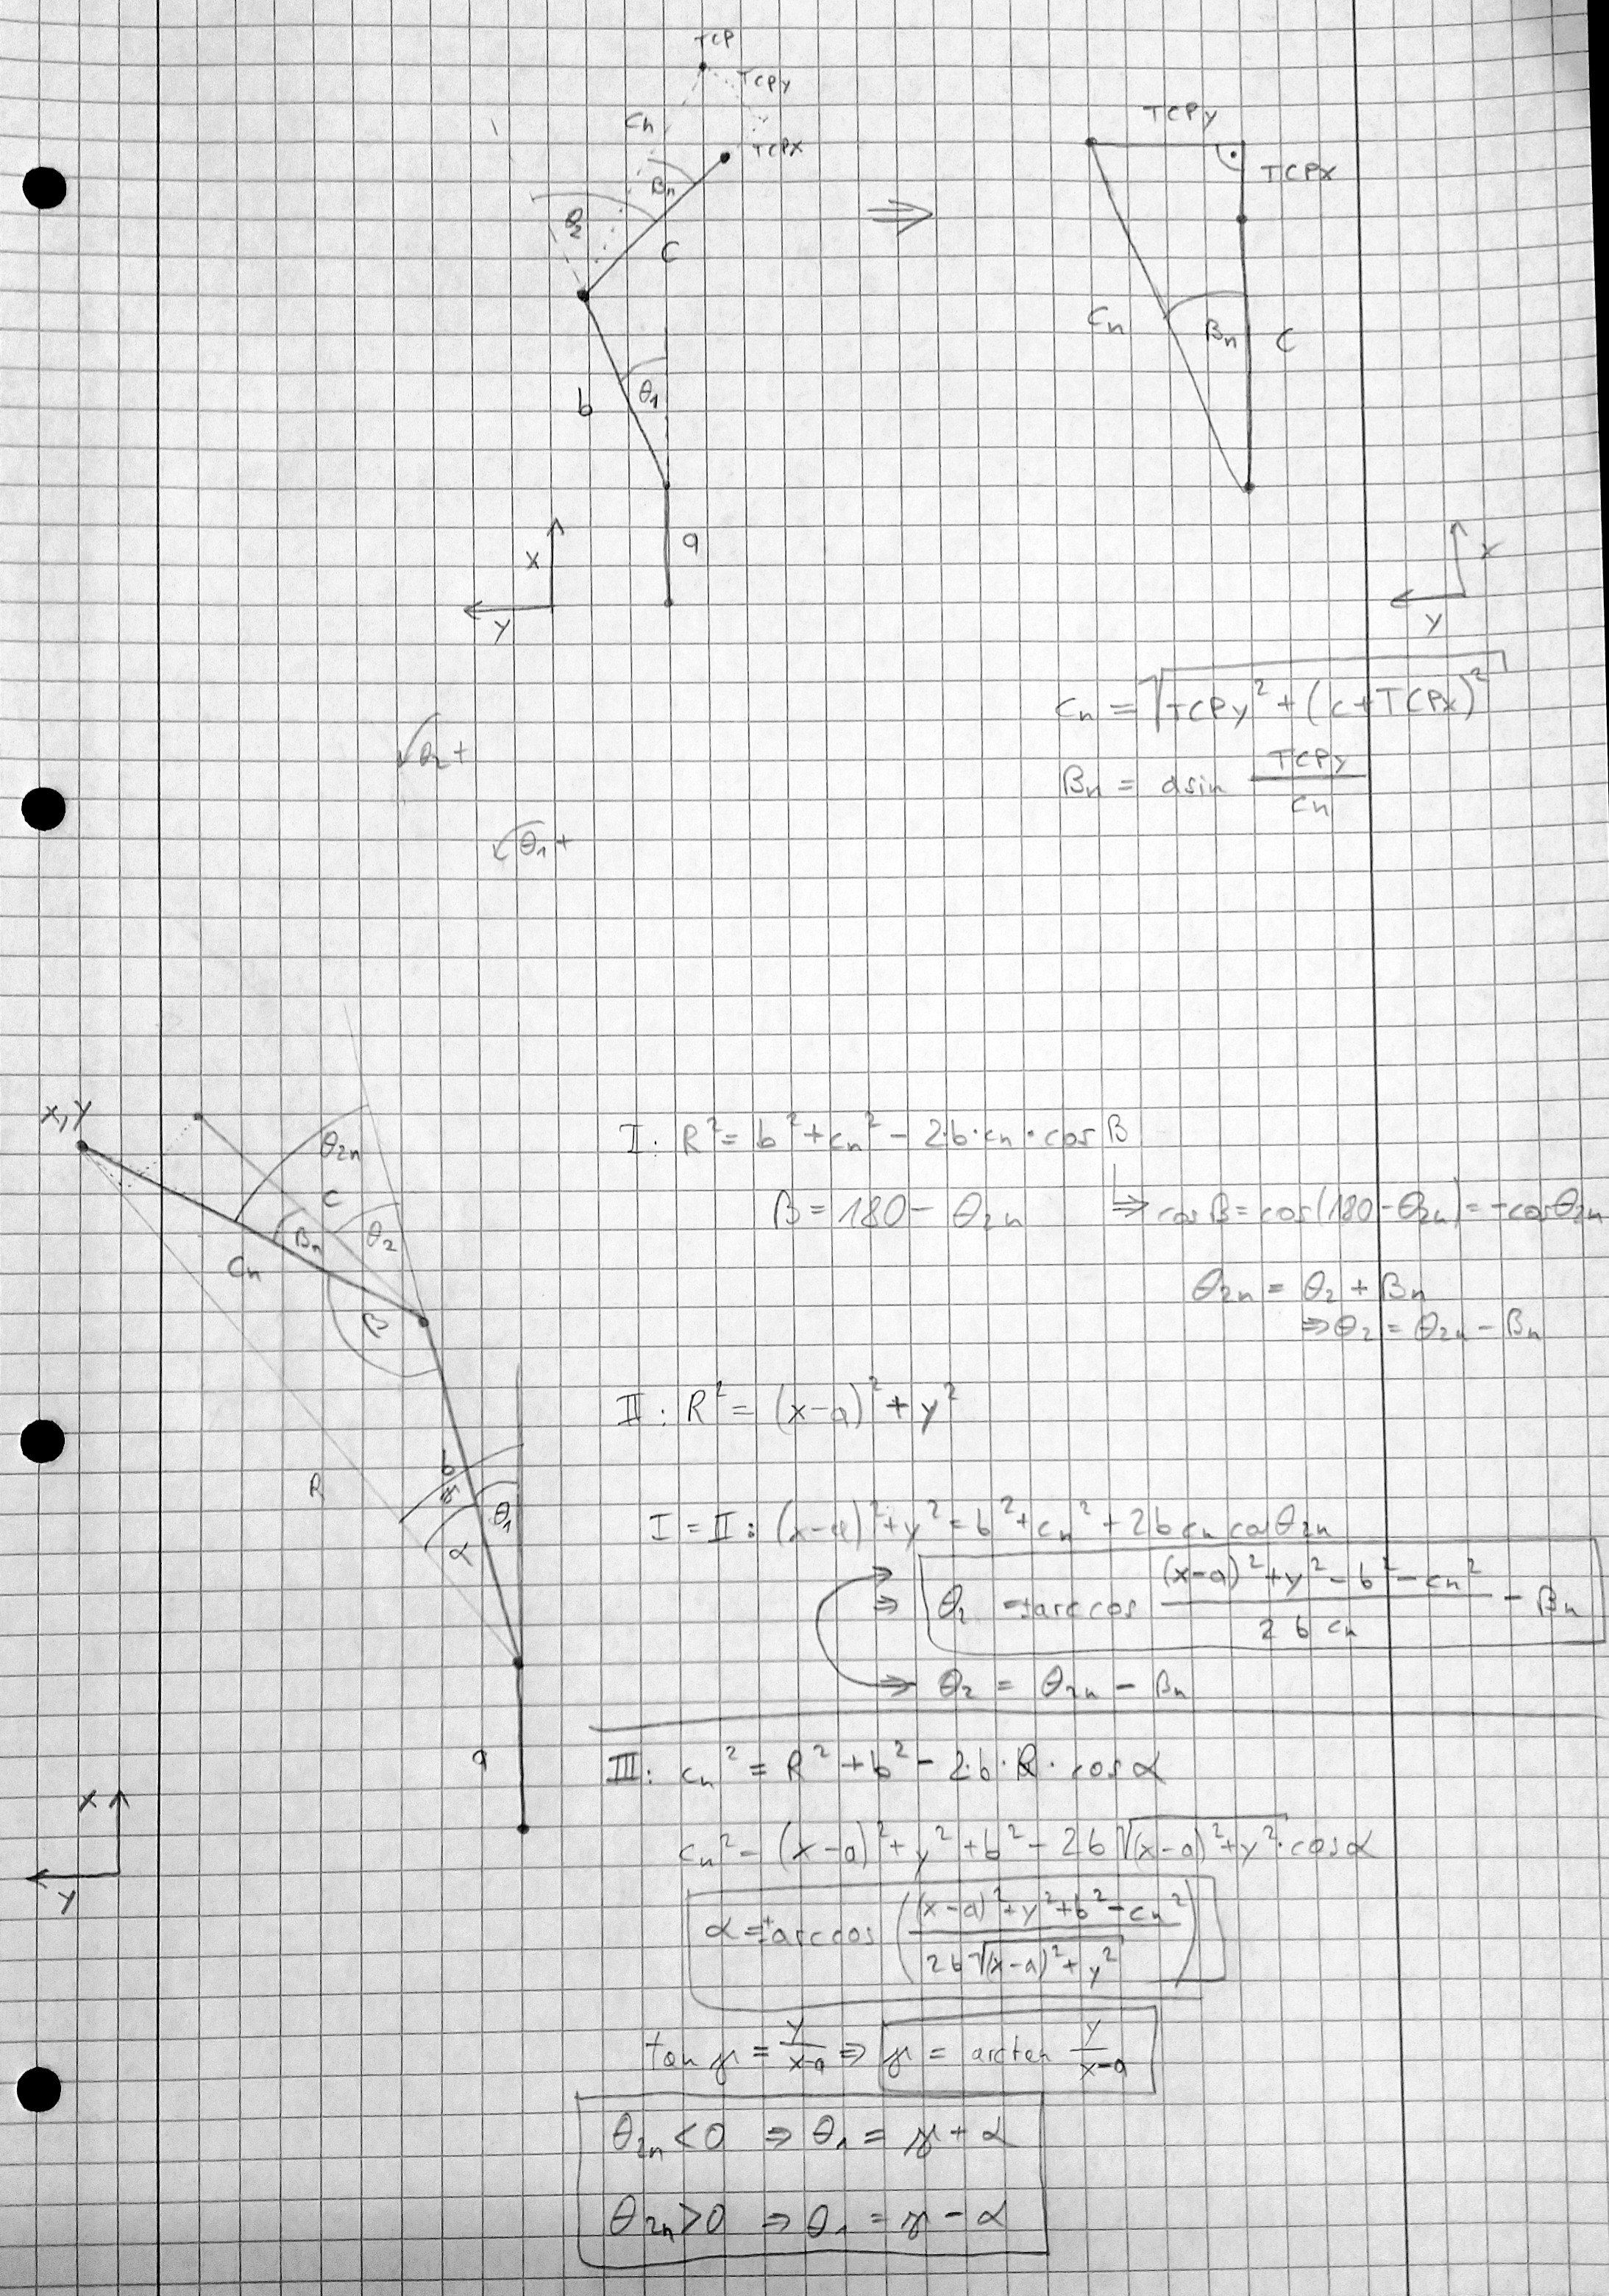 TCP
TCPy
cn
TCPx
βn
θ2
c
b
θ1
a
x
y
⇒
TCPy
TCPx
cn
βn
c
x
y
cn = √(TCPy² + (c+TCPx)²)
βn = asin TCPy/cn
θ2 +
θ1 +
x,y
θ2n
c
βn
θ2
cn
β
b
γ
θ1
α
R
a
x
y
I: R² = b² + cn² - 2·b·cn·cos β
β = 180 - θ2n ⇒ cos β = cos(180 - θ2n) = -cos θ2n
θ2n = θ2 + βn
⇒ θ2 = θ2n - βn
II: R² = (x-a)² + y²
I = II: (x-a)² + y² = b² + cn² + 2 b cn cos θ2n
⇒ θ2 = ± arccos ((x-a)² + y² - b² - cn²)/(2 b cn) - βn
⇒ θ2 = θ2n - βn
III: cn² = R² + b² - 2·b·R·cos α
cn² = (x-a)² + y² + b² - 2b √((x-a)² + y²)·cos α
α = ± arccos (((x-a)² + y² + b² - cn²)/(2b √((x-a)² + y²)))
tan γ = y/(x-a) ⇒ γ = arctan y/(x-a)
θ2n < 0 ⇒ θ1 = γ + α
θ2n > 0 ⇒ θ1 = γ - α